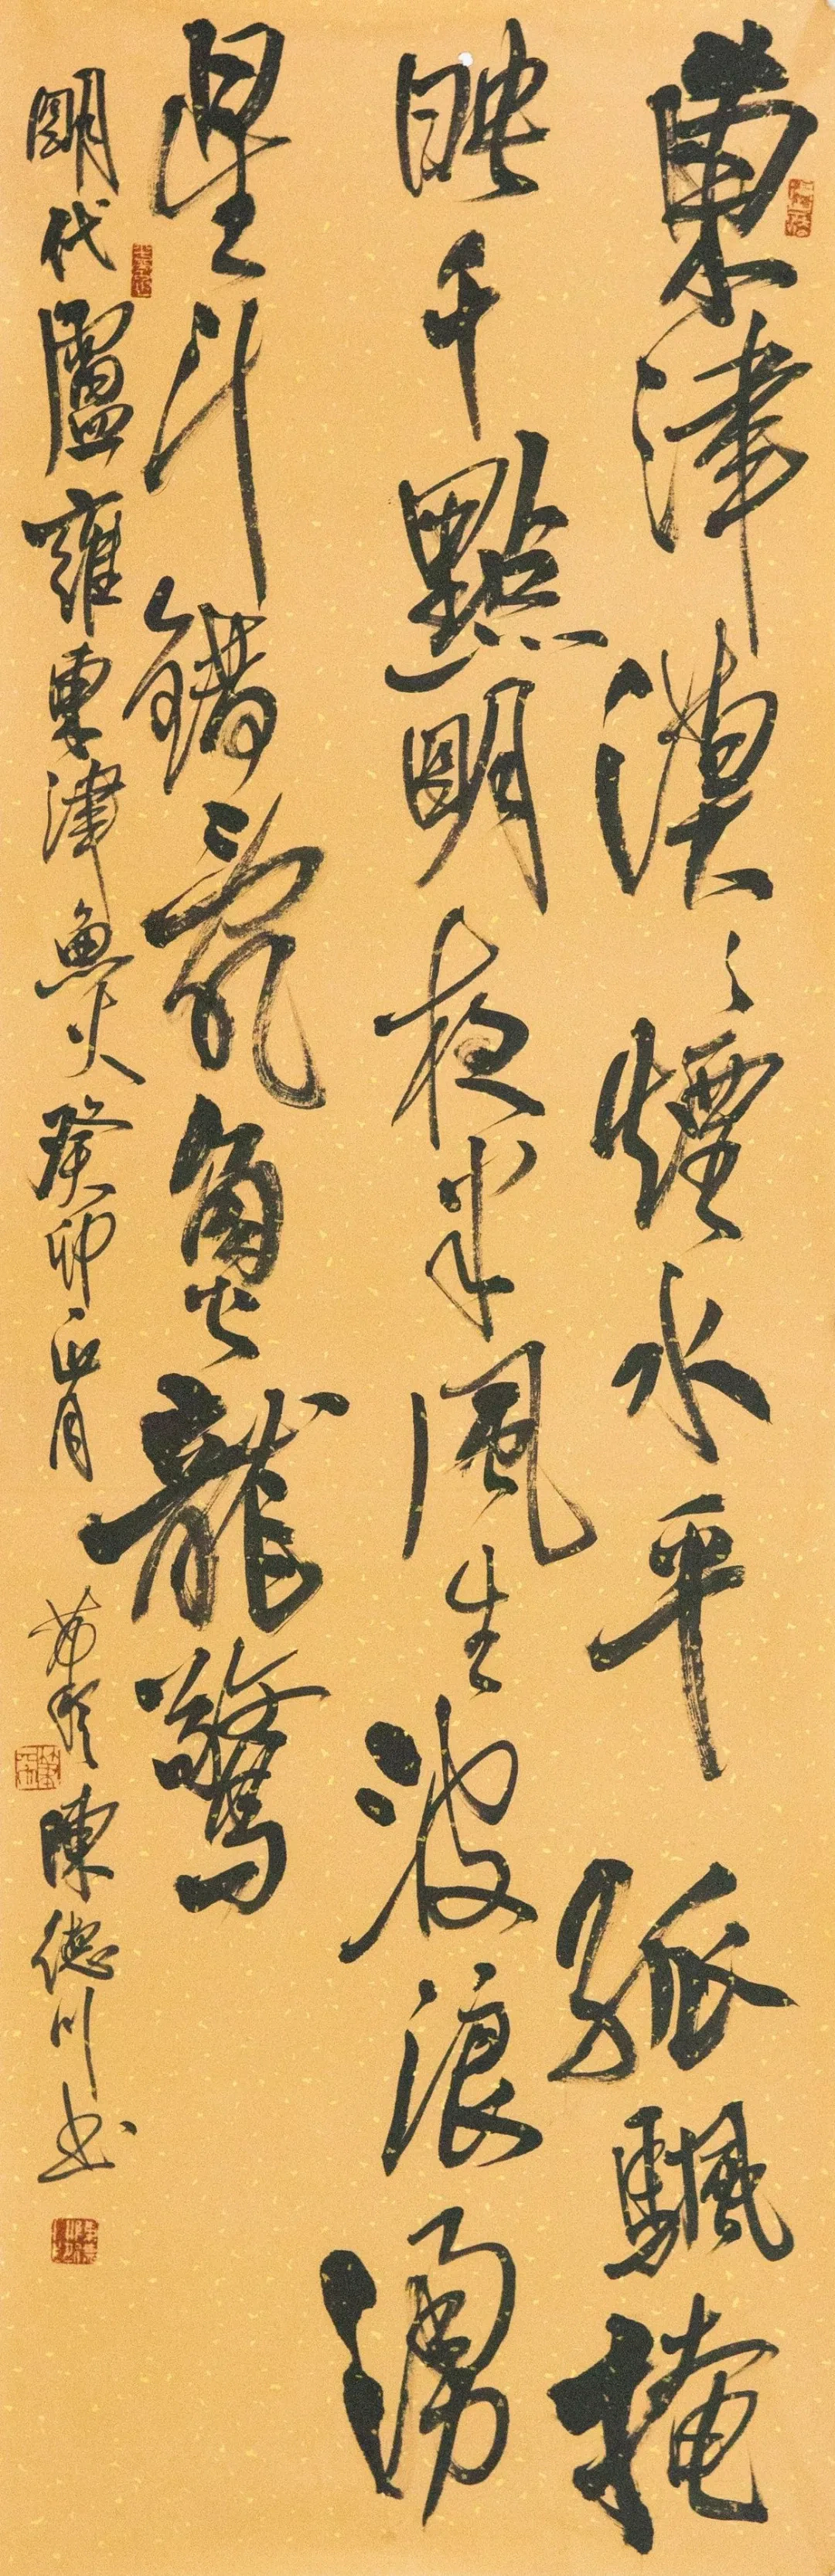 東津漠々煙水平孤颿掩
映千點明夜半風生波浪湧
星斗錯亂魚龍驚
明代盧雍東津魚火癸卯正月
陳德川书